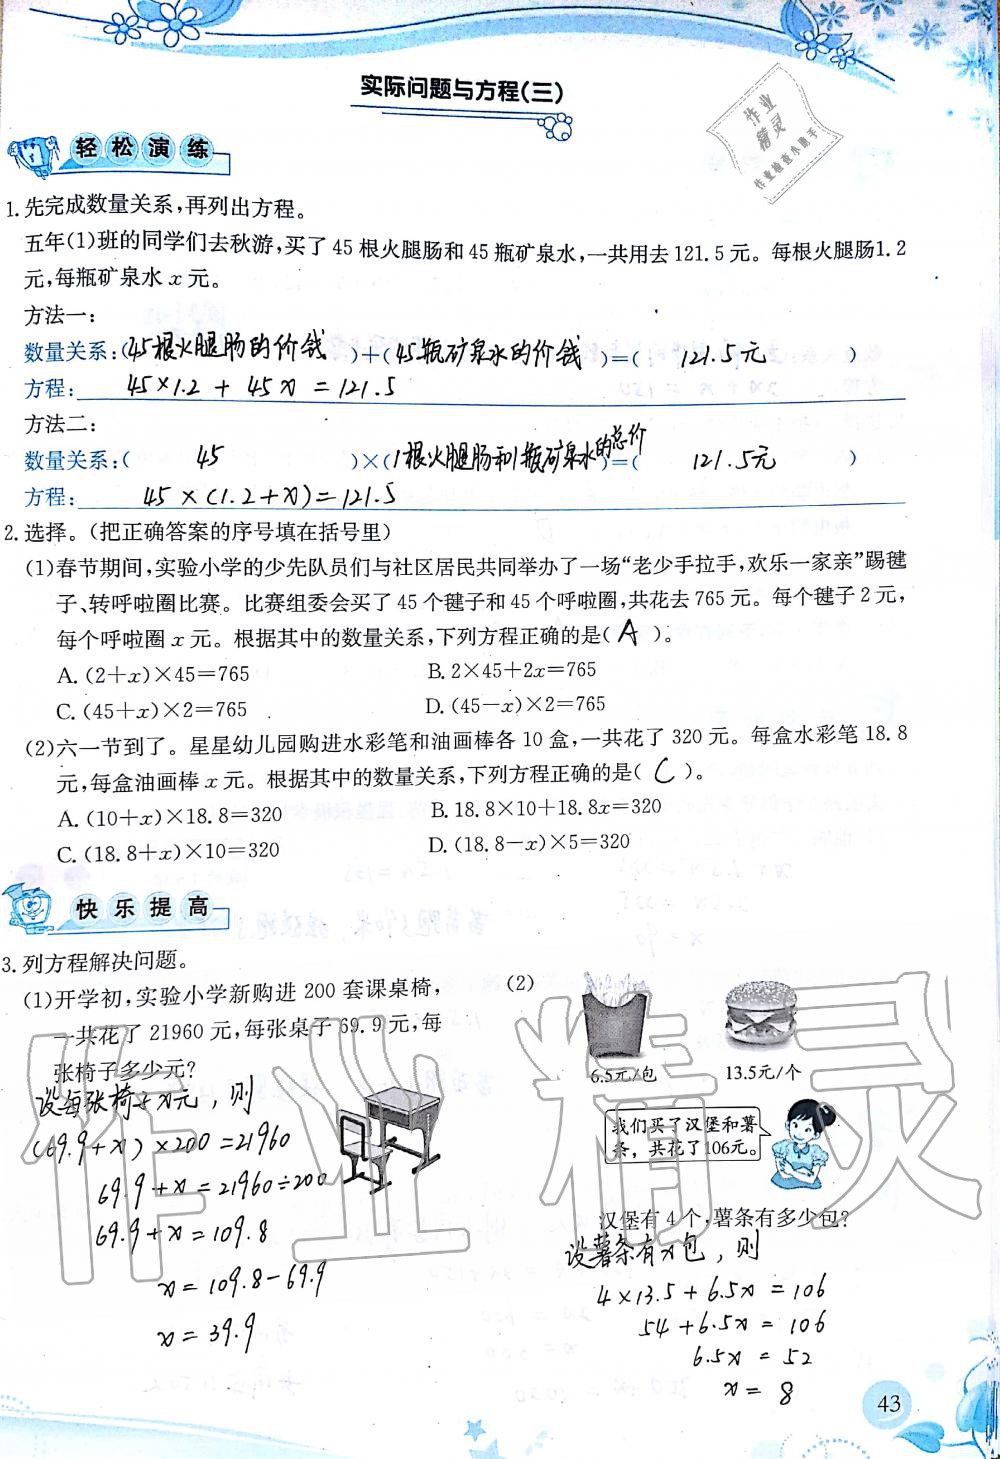 实际问题与方程(三)
作业
精灵
作业检查小能手
轻松演练
1.先完成数量关系,再列出方程。
五年(1)班的同学们去秋游,买了45根火腿肠和45瓶矿泉水,一共用去121.5元。每根火腿肠1.2
元,每瓶矿泉水x元。
方法一:
数量关系:(45根火腿肠的价钱)+(45瓶矿泉水的价钱)=(121.5元)
方程: 45×1.2+45x=121.5
方法二:
数量关系:(45)×(1根火腿肠和1瓶矿泉水的总价)=(121.5元)
方程: 45×(1.2+x)=121.5
2.选择。(把正确答案的序号填在括号里)
(1)春节期间,实验小学的少先队员们与社区居民共同举办了一场“老少手拉手,欢乐一家亲”踢毽
子、转呼啦圈比赛。比赛组委会买了45个毽子和45个呼啦圈,共花去765元。每个毽子2元,
每个呼啦圈x元。根据其中的数量关系,下列方程正确的是(A)。
A.(2+x)×45=765 B.2×45+2x=765
C.(45+x)×2=765 D.(45-x)×2=765
(2)六一节到了。星星幼儿园购进水彩笔和油画棒各10盒,一共花了320元。每盒水彩笔18.8
元,每盒油画棒x元。根据其中的数量关系,下列方程正确的是(C)。
A.(10+x)×18.8=320 B.18.8×10+18.8x=320
C.(18.8+x)×10=320 D.(18.8-x)×5=320
快乐提高
3.列方程解决问题。
(1)开学初,实验小学新购进200套课桌椅,
一共花了21960元,每张桌子69.9元,每
张椅子多少元?
设每张椅子x元,则
(69.9+x)×200=21960
69.9+x=21960÷200
69.9+x=109.8
x=109.8-69.9
x=39.9
(2)
6.5元/包 13.5元/个
我们买了汉堡和薯
条,共花了106元。
汉堡有4个,薯条有多少包?
设薯条有x包,则
4×13.5+6.5x=106
54+6.5x=106
6.5x=52
x=8
作业精灵
43